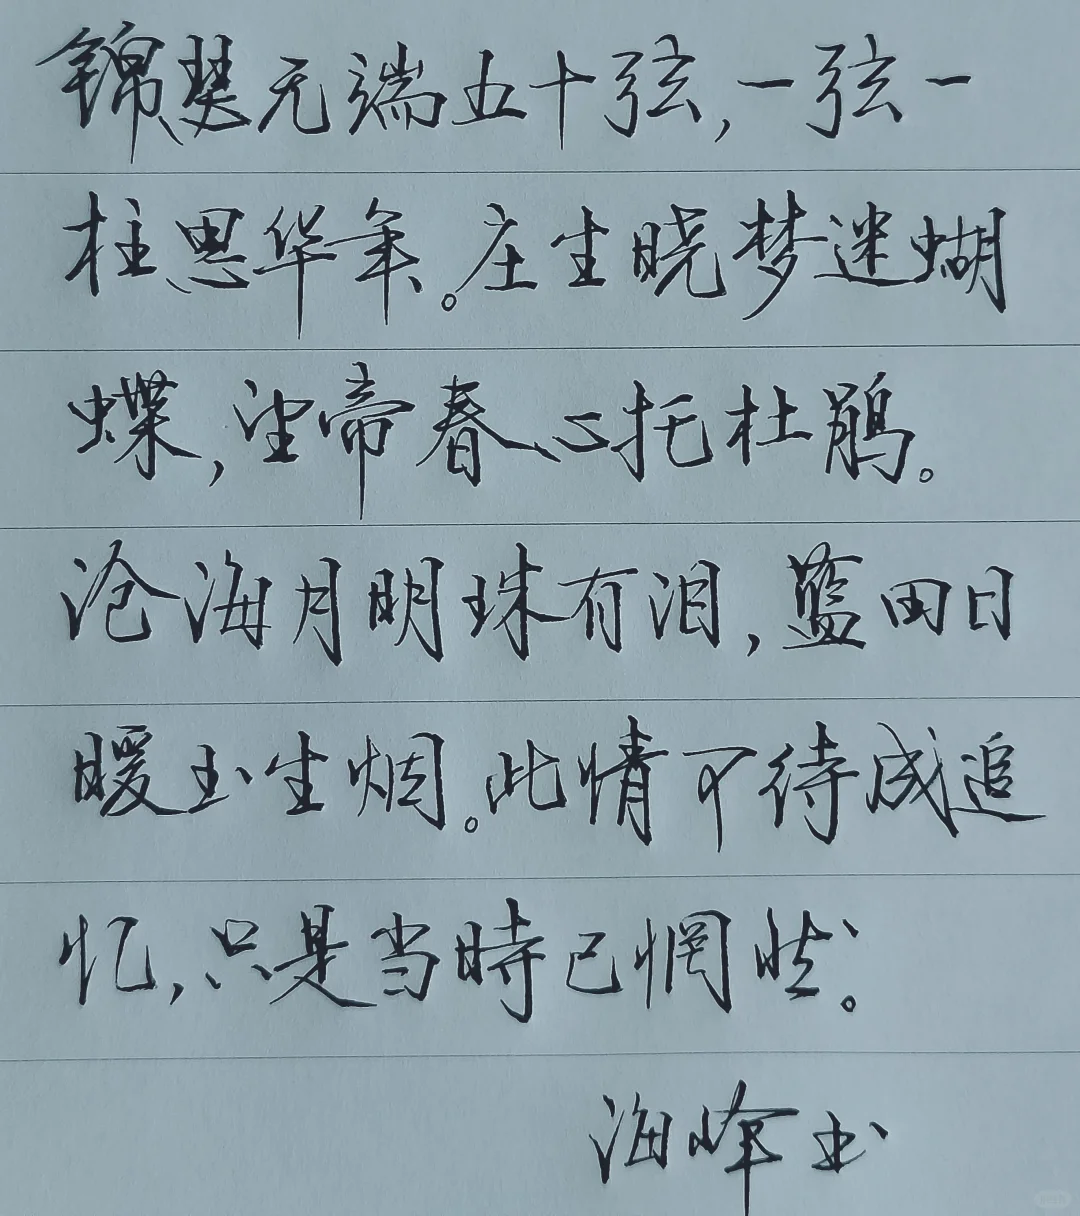 锦瑟无端五十弦,一弦一
柱思华年。庄生晓梦迷蝴
蝶,望帝春心托杜鹃。
沧海月明珠有泪,蓝田日
暖玉生烟。此情可待成追
忆,只是当時已惘然。
海峰书